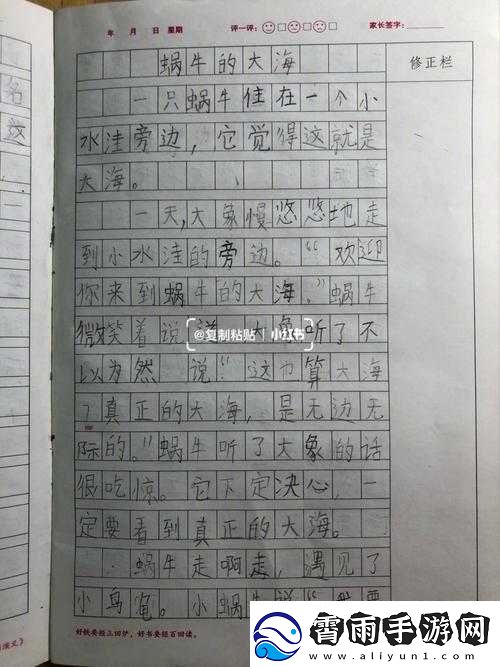 年 月 日 星期 评一评: 家长签字:
修正栏
蜗牛的大海
一只蜗牛住在一个小
水洼旁边，它觉得这就是
大海。
一天,大象慢悠悠地走
到小水洼的旁边。“欢迎
你来到蜗牛的大海,”蜗牛
微笑着说 大象听了不
@复制粘贴 小红书
以为然 说:“这也算大海
？真正的大海，是无边无
际的。”蜗牛听了大象的话
很吃惊。它下定决心，一
定要看到真正的大海。
蜗牛走啊走，遇见了
小乌龟。小蜗牛说“我要
好铁要经三回炉，好书要经百回读。
霄雨手游网
www.aliyun1.com